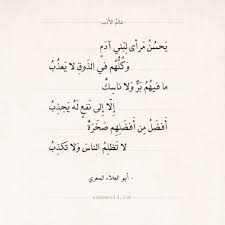 - عالم الأدب -
يَحسُنُ مَرأى لِبَني آدَمٍ
وَكُلُّهُم في الذَوقِ لا يَعذُبُ
ما فيهُمُ بَرٌّ وَلا ناسِكٌ
إِلّا إِلى نَفعٍ لَهُ يَجذِبُ
أَفضَلُ مِن أَفضَلِهِم صَخرَةٌ
لا تَظلِمُ الناسَ وَلا تَكذِبُ
- أبو العلاء المعري -
adabworld.com